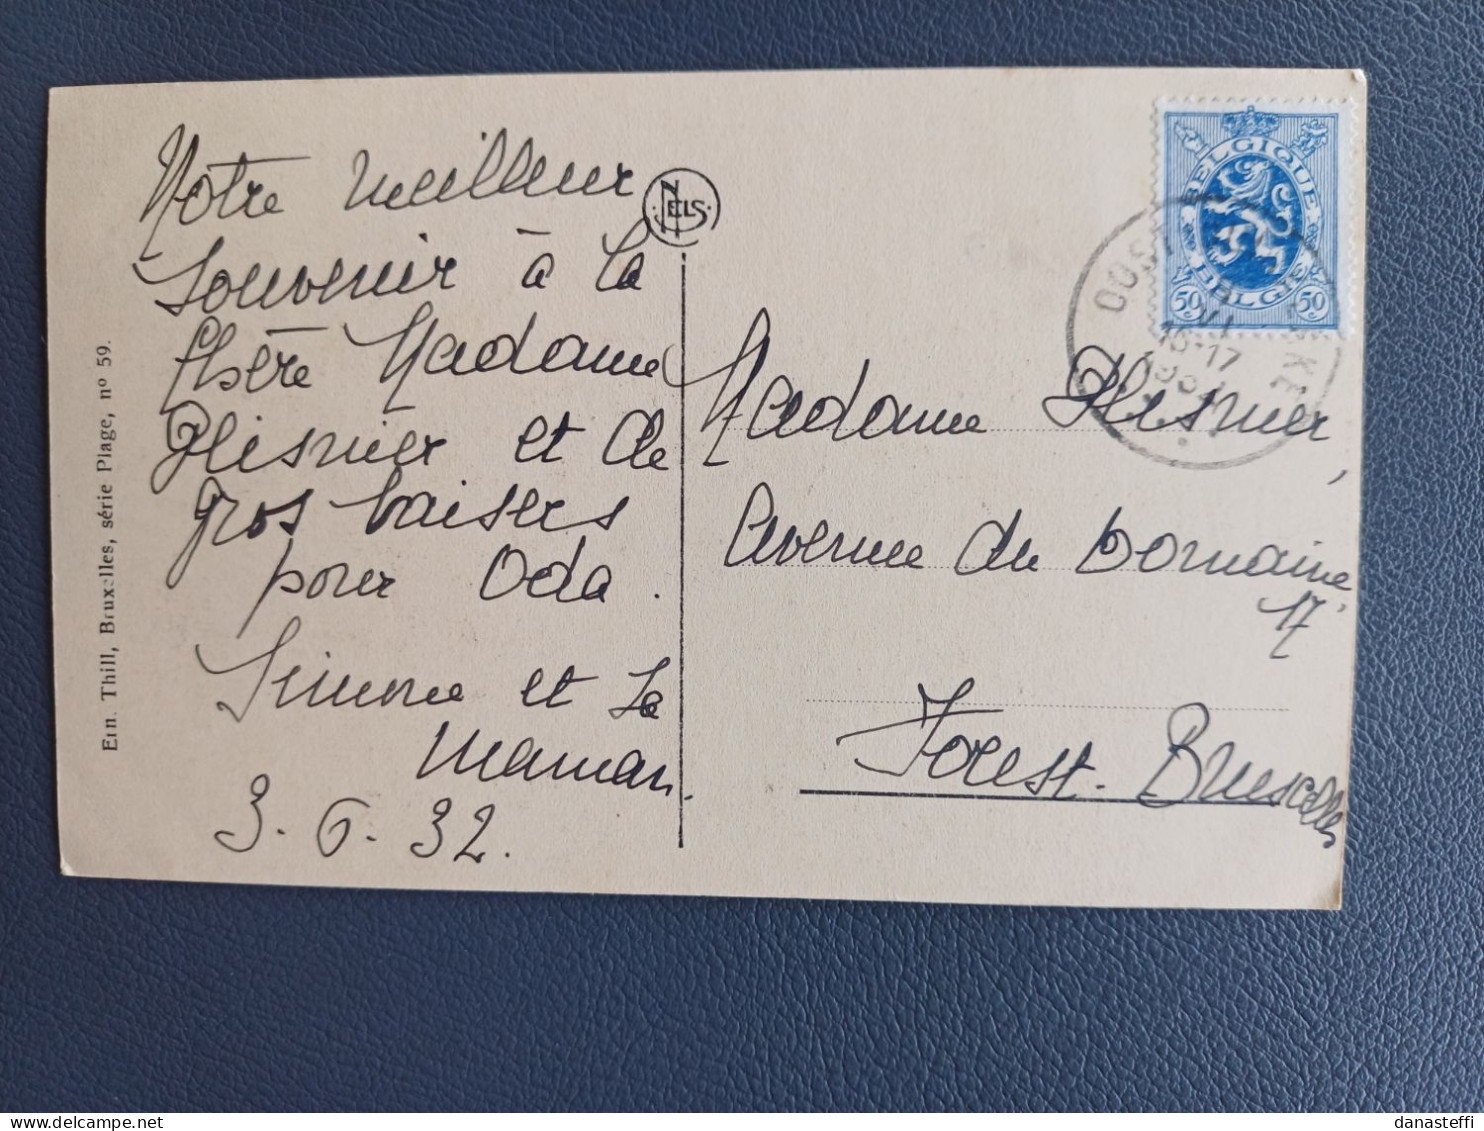 Notre meilleur
souvenir à la
chère Madame
Plisnier et de
gros baisers
pour Oda.
Simone et sa
maman.
3.6.32.
NELS
Ern. Thill, Bruxelles, série Plage, nº 59.
BELGIQUE
BELGIË
50 50
VI
16-17
Madame Plisnier,
Avenue du Domaine
17
Forest-Bruxelles
danasteffi